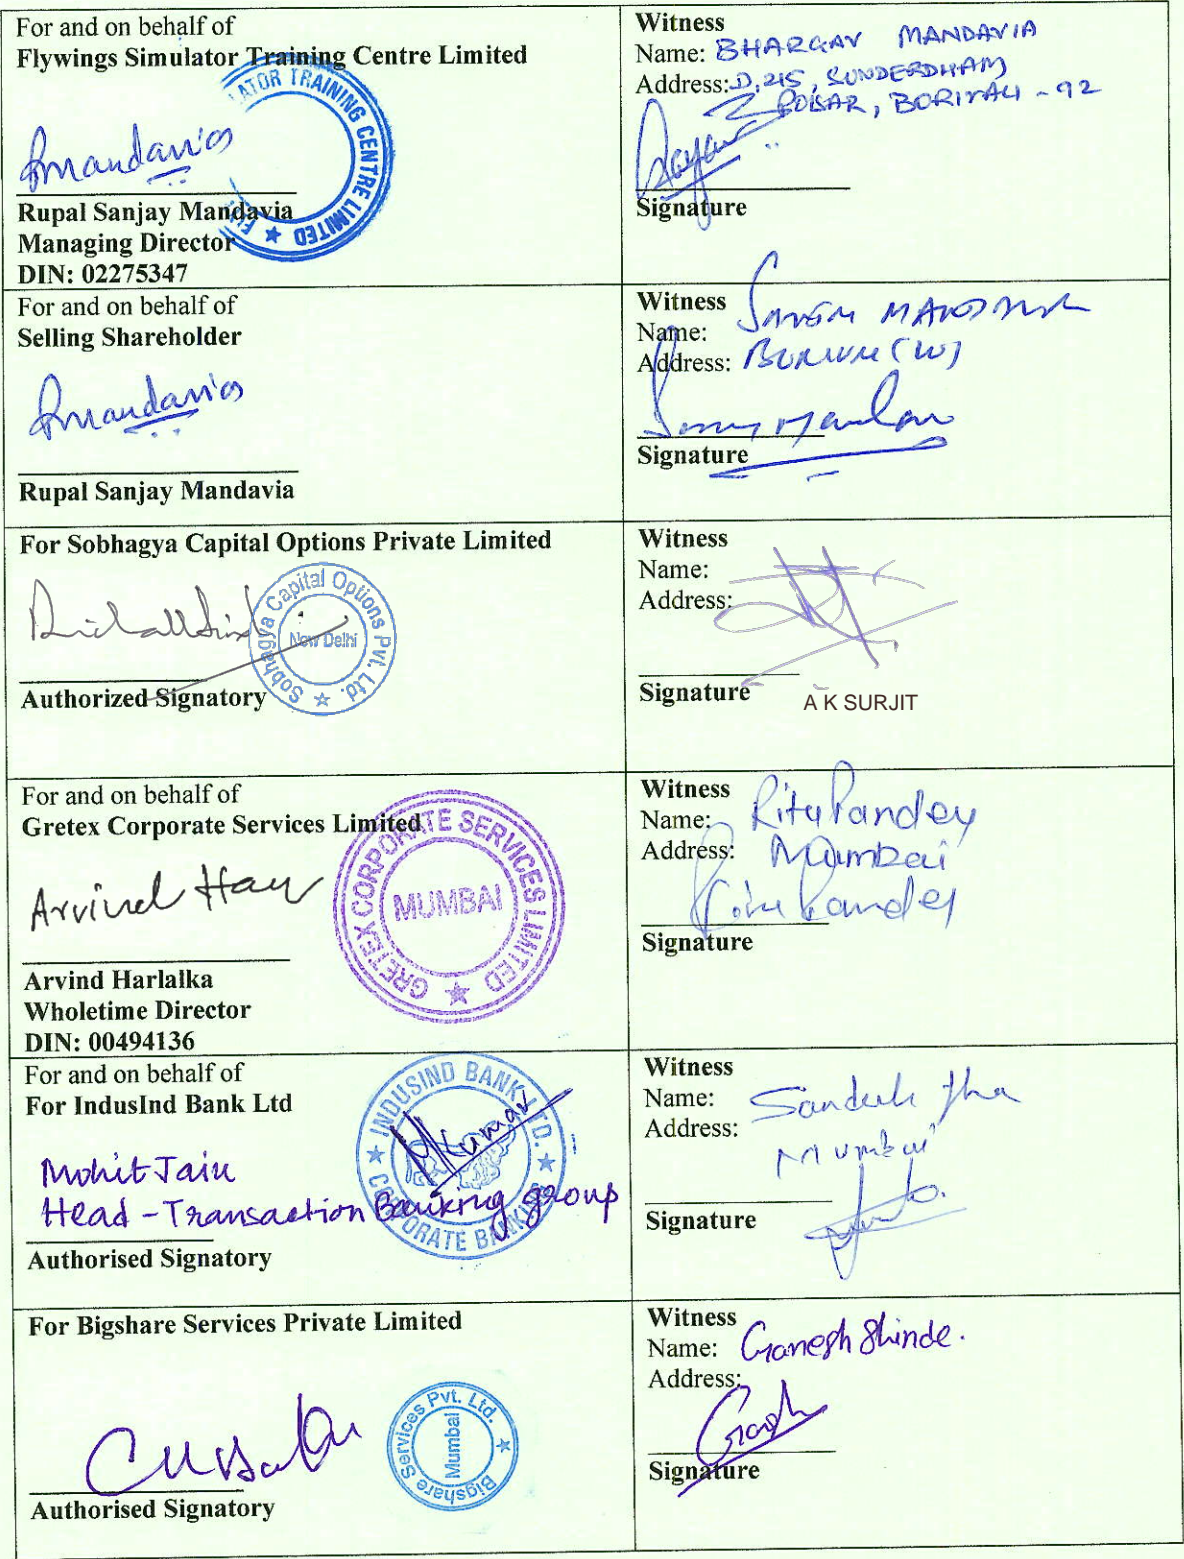 For and on behalf of
Flywings Simulator Training Centre Limited
ATOR TRAINING CENTRE LIMITED
Rmandavia
Rupal Sanjay Mandavia
Managing Director
DIN: 02275347
Witness
Name: BHARGAV MANDAVIA
Address: D, 215, SUNDERDHAM
POISAR, BORIVALI - 92
Signature
For and on behalf of
Selling Shareholder
Rmandavia
Rupal Sanjay Mandavia
Witness
Name:
Address:
Signature
For Sobhagya Capital Options Private Limited
Sobhagya Capital Options Pvt. Ltd.
New Delhi
Authorized Signatory
Witness
Name:
Address:
Signature
A K SURJIT
For and on behalf of
Gretex Corporate Services Limited
GRETEX CORPORATE SERVICES LIMITED
MUMBAI
Arvind
Arvind Harlalka
Wholetime Director
DIN: 00494136
Witness
Name: Ritu Pandey
Address: Mumbai
Pandey
Signature
For and on behalf of
For IndusInd Bank Ltd
INDUSIND BANK LTD.
CORPORATE BANKING
MKumar
Mohit Jain
Head - Transaction Banking group
Authorised Signatory
Witness
Name: Jha
Address: Mumbai
Signature
For Bigshare Services Private Limited
Bigshare Services Pvt. Ltd.
Mumbai
Authorised Signatory
Witness
Name: Ganesh Shinde.
Address:
Signature